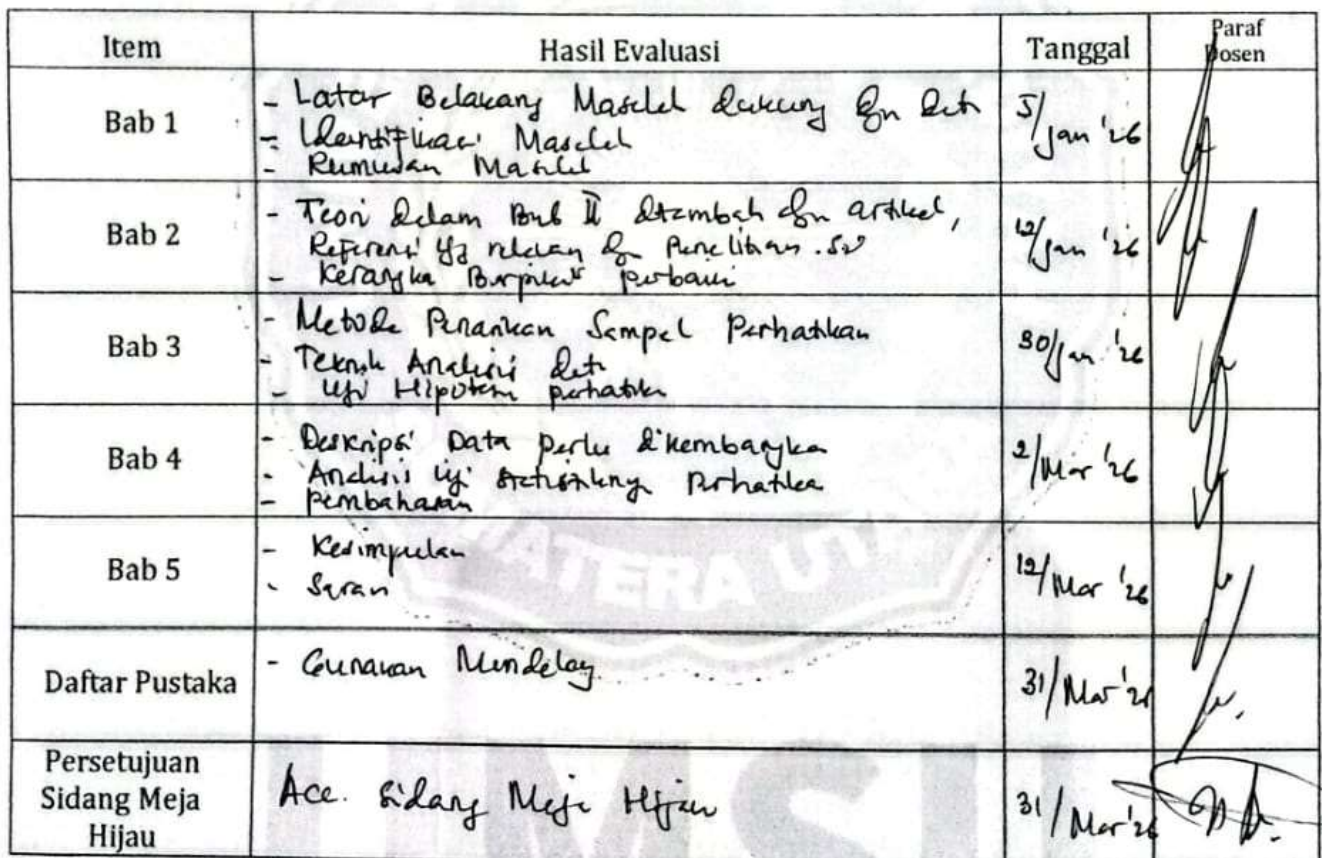 Item Hasil Evaluasi Tanggal Paraf Dosen
Bab 1
- Latar Belakang Masalah dukung dgn data
- Identifikasi Masalah
- Rumusan Masalah
5/Jan '26
Bab 2
- Teori dalam Bab II ditambah dgn artikel,
Referensi yg relevan dgn Penelitian.
- Kerangka Berpikir perbaiki
12/Jan '26
Bab 3
- Metode Penarikan Sampel Perhatikan
- Teknik Analisis data
- Uji Hipotesis perhatikan
30/Jan '26
Bab 4
- Deskripsi Data perlu dikembangkan
- Analisis Uji statistiknya Perhatikan
- Pembahasan
2/Mar '26
Bab 5
- Kesimpulan
- Saran
12/Mar '26
Daftar Pustaka
- Gunakan Mendeley
31/Mar '26
Persetujuan
Sidang Meja
Hijau
Acc. Sidang Meja Hijau
31/Mar '26
UMSU